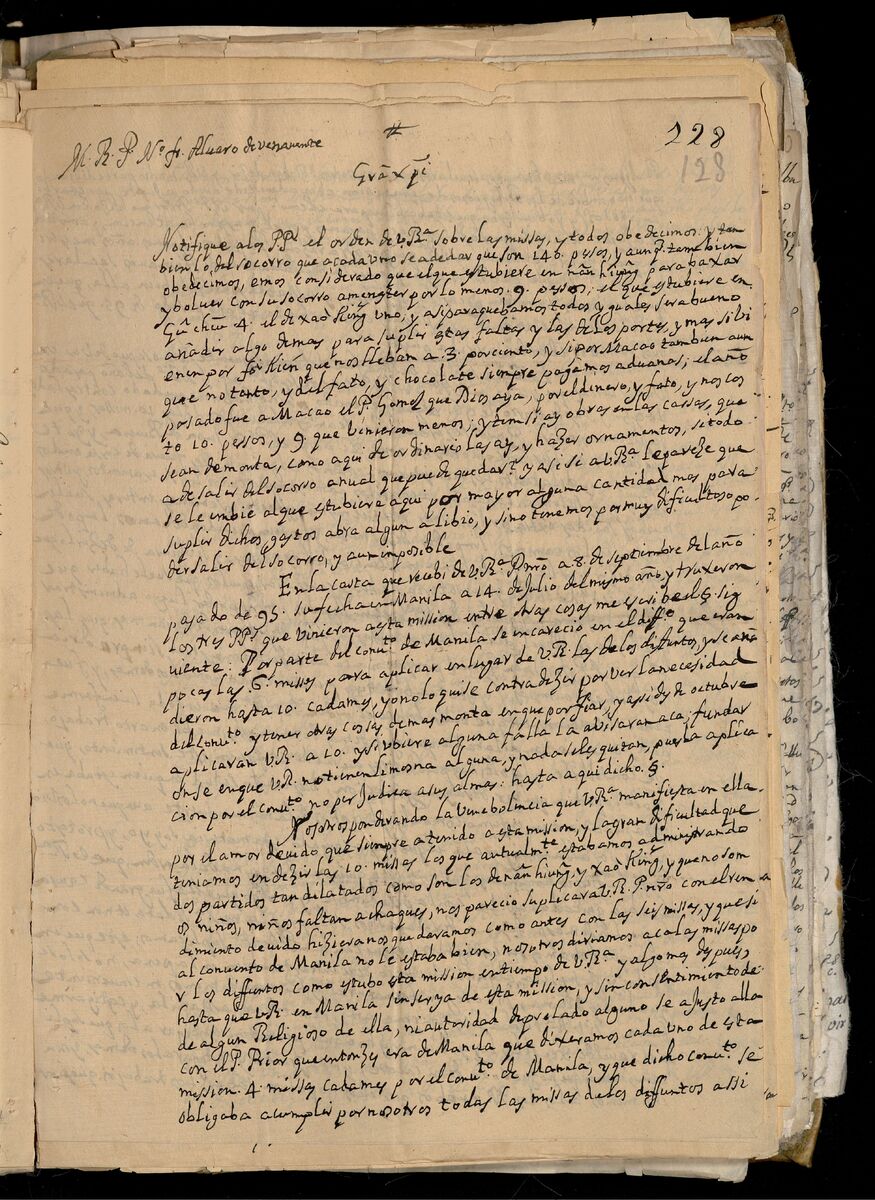 #
228
128
M. R. P. Nº. fr. Alvaro de venavente
Grã Xpi
Notifique a los PPˢ el orden de VRᵃ sobre las missas, y todos obedecimos: y tan
bien lo del socorro que a cada uno se a de dar que son 140. pesos, y aunq̃ tambien
obedecimos, emos considerado que el que estubiere en nãn hiũng para baxar
y bolver con su socorro a menester por lo menos. 9. pesos; el que estubiere en
Guĩ cheu 4. el de xaò Kińg uno; y assi para quedamos todos yguales sera bueno
añadir algo de mas para suplir estas faltas y las de los portes, y mas si bi
enen por foˢ Kień que nos lleban a. 3. por ciento, y si por Macao tambien aun
que no tanto, y del fato, y chocolate siempre pagamos aduanas; el año
pasado fue a Macao el P. Gomez que Dios aya, por el dinero, y fato, y nos cos
to 10. pessos, y 9. que binieron menos; y tem si ay obras en las cassas, que
sean de monta, como aqui de ordinario las ay, y hazer ornamentos, si todo
a de salir del socorro anual que puede quedar? y assi si a VRᵃ le pareze que
se le embie al que estubiere aqui por mayor alguna cantidad mas para
suplir dichos gastos abra algun alibio, y sino tenemos por muy dificultoso po
der salir del socorro, y aun imposible
En la carta que recebi de VRᵃ P.nrõ a 8. de septiembre del año
pasado de 95. su fecha en Manila a 14. de Julio del mismo año, y truxeron
los tres PPˢ que vinieron a esta mission entre otras cosas me escribe el §. sig
uiente: Por parte del convᵗᵒ de Manila se encarecio en el diffᵒ que eran
pocas las 6. missas para aplicar en lugar de V.R. las de los difuntos, y se aña
dieron hasta 10. cadames, yo no lo quise contradezir por ver la necesidad
del convᵗᵒ y tener otras cossas de mas monta en que porfiar, y assi des de octubre
aplicaran V.R. a 10. y si ubiere alguna falla la abisaran aca; fundar
onse en que V.R. no tienen limosna alguna, y nada se les quitan, pues la aplica
cion por el convᵗᵒ no perjudica a sus almas: hasta aqui dicho. §.
Nosotros ponderando la venebolincia que VRᵃ manifiesta en ella
por el amor devido, que siempre a tenido a esta mission, y la gran dificultad que
teniamos en dezir las 10. missas los que autualmᵗᵉ estabamos administrando
dos partidos tan dilatados como son los de nãn hiũng, y xaò Kińg, y que no som
os niños, ni nos faltan achaques, nos parecio suplicar a V.R. P.nrõ con el ren
dimiento devido hiziera nos quedaramos como antes con las seis missas, y que si
al convento de Manila no le estaba bien, nosotros diriamos aca las missas po
r los diffuntos como estubo esta mission en tiempo de VRᵃ y algo mas despues,
hasta que V.R. en Manila sin ser ya de esta mission, y sin consentimiento de
de algun Religioso de ella, ni autoridad de prelado alguno se ajusto alla
con el P. Prior que entonzes era de Manila que dixeramos cada uno de esta
mission 4. missas cadames por el convᵗᵒ de Manila, y que dicho convᵗᵒ se
obligaba a cumplir por nosotros todas las missas de los diffuntos assi